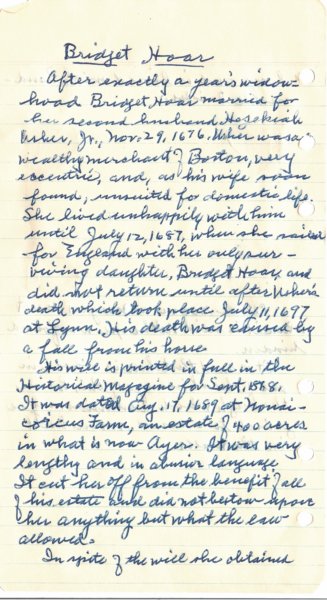 Bridget Hoar
After exactly a year's widow-
hood Bridget Hoar married for
her second husband Hezekiah
Usher, Jr., Nov. 29, 1676. Usher was a
wealthy merchant of Boston, very
eccentric, and, as his wife soon
found, unsuited for domestic life.
She lived unhappily with him
until July 12, 1687, when she sailed
for England with her only sur-
viving daughter, Bridget Hoar, and
did not return until after Usher's
death which took place July 11, 1697
at Lynn. His death was caused by
a fall from his horse
His will is printed in full in the
Historical Magazine for Sept. 1868.
It was dated Aug. 17, 1689 at Nonai-
coicus Farm, an estate of 400 acres
in what is now Ayer. It was very
lengthy and in abusive language.
It cut her off from the benefit of all
of his estate and did not bestow upon
her anything but what the law
allowed.
In spite of the will she obtained